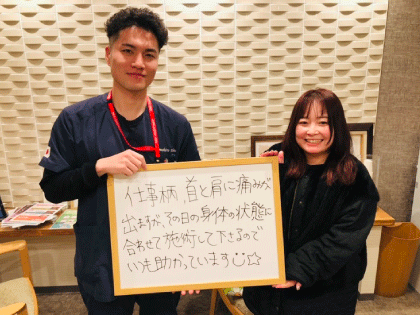 仕事柄、首と肩に痛みが
出ますが、その日の身体の状態に
合わせて施術して下さるので
いつも助かっています☺☆